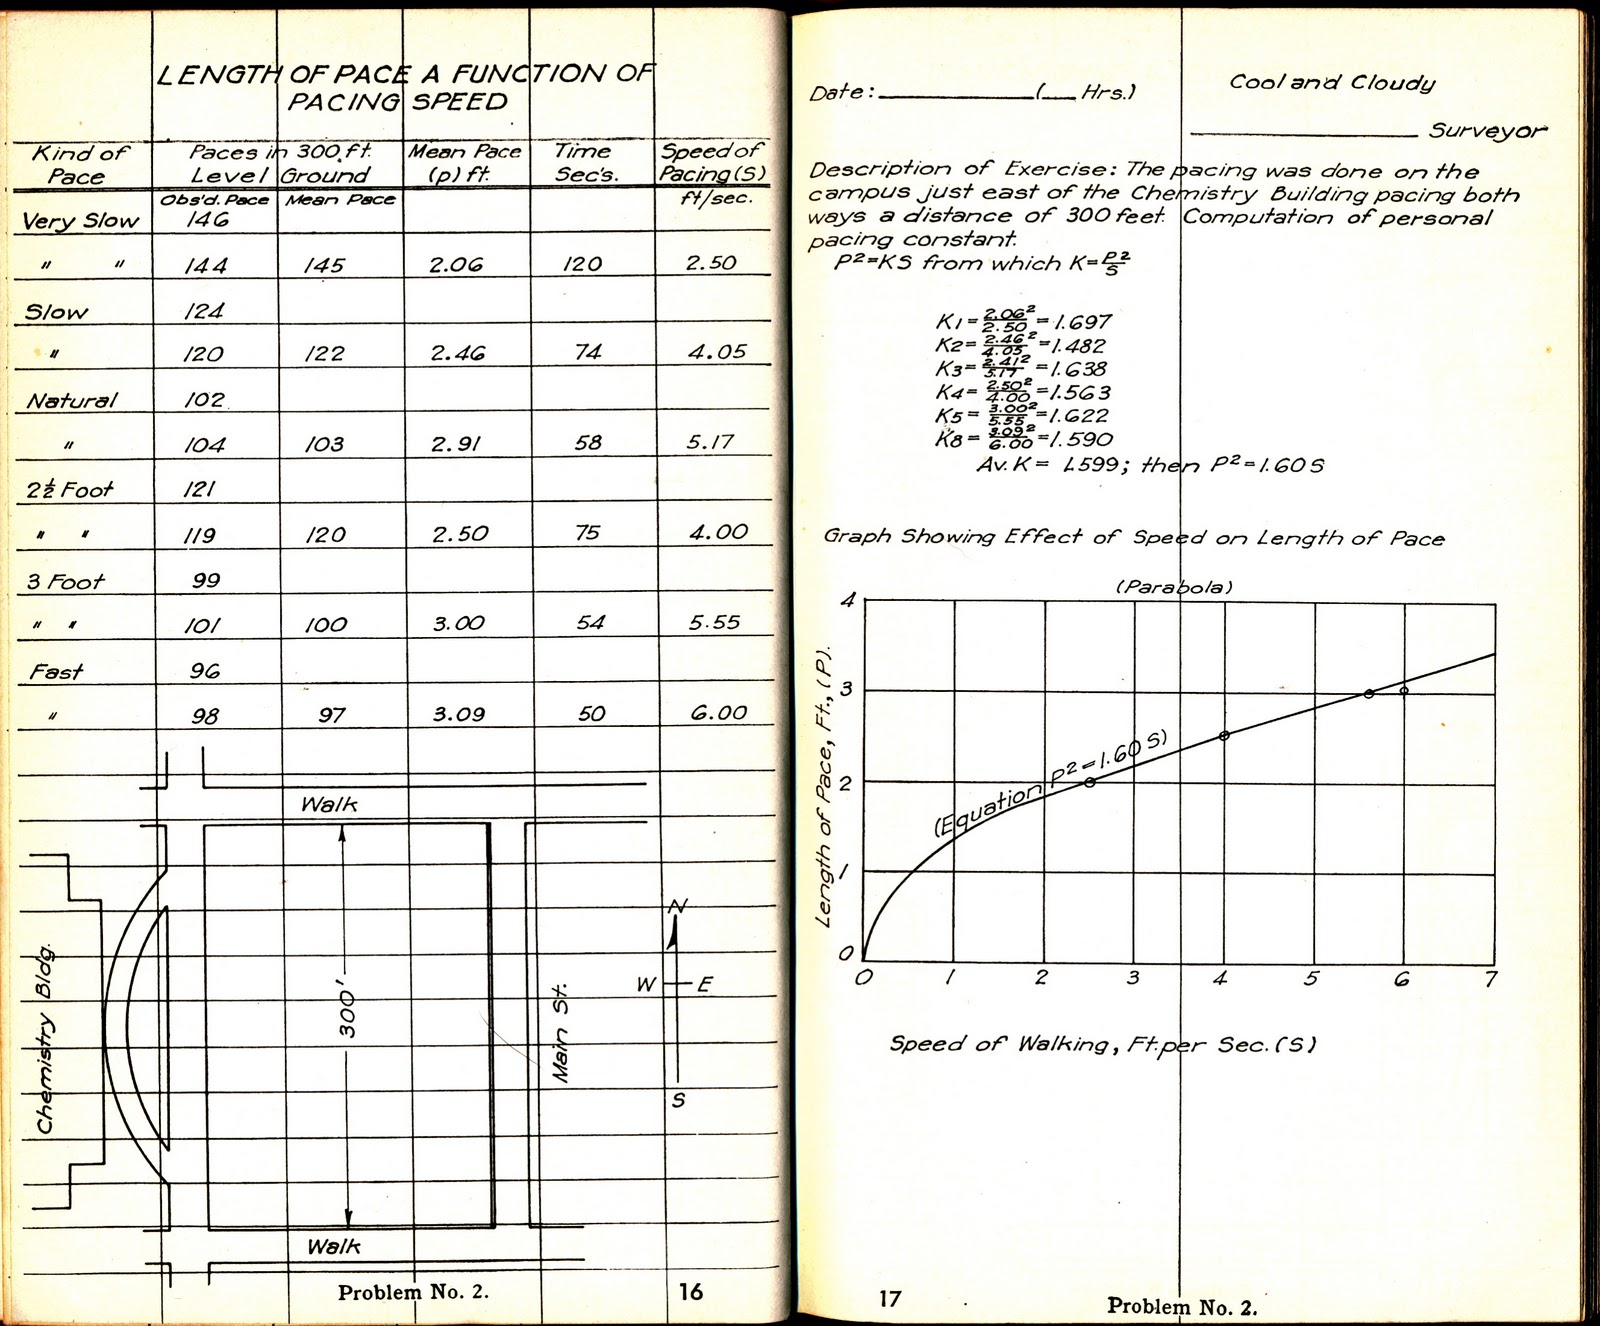 LENGTH OF PACE A FUNCTION OF
PACING SPEED
Kind of Pace | Paces in 300 ft. Level Ground | Mean Pace (p) ft. | Time Sec's. | Speed of Pacing (S)
Obs'd. Pace | Mean Pace | ft/sec.
Very Slow 146
" " 144 145 2.06 120 2.50
Slow 124
" 120 122 2.46 74 4.05
Natural 102
" 104 103 2.91 58 5.17
2½ Foot 121
" " 119 120 2.50 75 4.00
3 Foot 99
" " 101 100 3.00 54 5.55
Fast 96
" 98 97 3.09 50 6.00
Walk
Chemistry Bldg.
300'
Main St.
N
W E
S
Walk
Problem No. 2. 16
Date: ( Hrs.) Cool and Cloudy
Surveyor
Description of Exercise: The pacing was done on the
campus just east of the Chemistry Building pacing both
ways a distance of 300 feet. Computation of personal
pacing constant.
P²=KS from which K=P²/S
K1=2.06²/2.50=1.697
K2=2.46²/4.05=1.482
K3=2.41²/5.17=1.638
K4=2.50²/4.00=1.563
K5=3.00²/5.55=1.622
K8=3.09²/6.00=1.590
Av. K = 1.599; then P²=1.60 S
Graph Showing Effect of Speed on Length of Pace
(Parabola)
Length of Pace, Ft., (P).
4
3
2
1
0
(Equation P²=1.60 S)
0 1 2 3 4 5 6 7
Speed of Walking, Ft. per Sec. (S)
17 Problem No. 2.